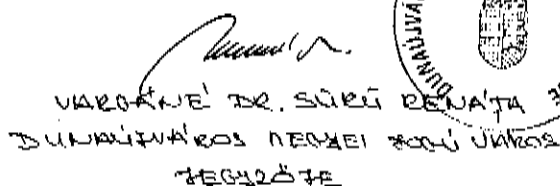 DUNAÚJVÁ
VARGÁNÉ DR. SÜRÜ RENÁTA
DUNAÚJVÁROS MEGYEI JOGÚ VÁROS
JEGYZŐJE